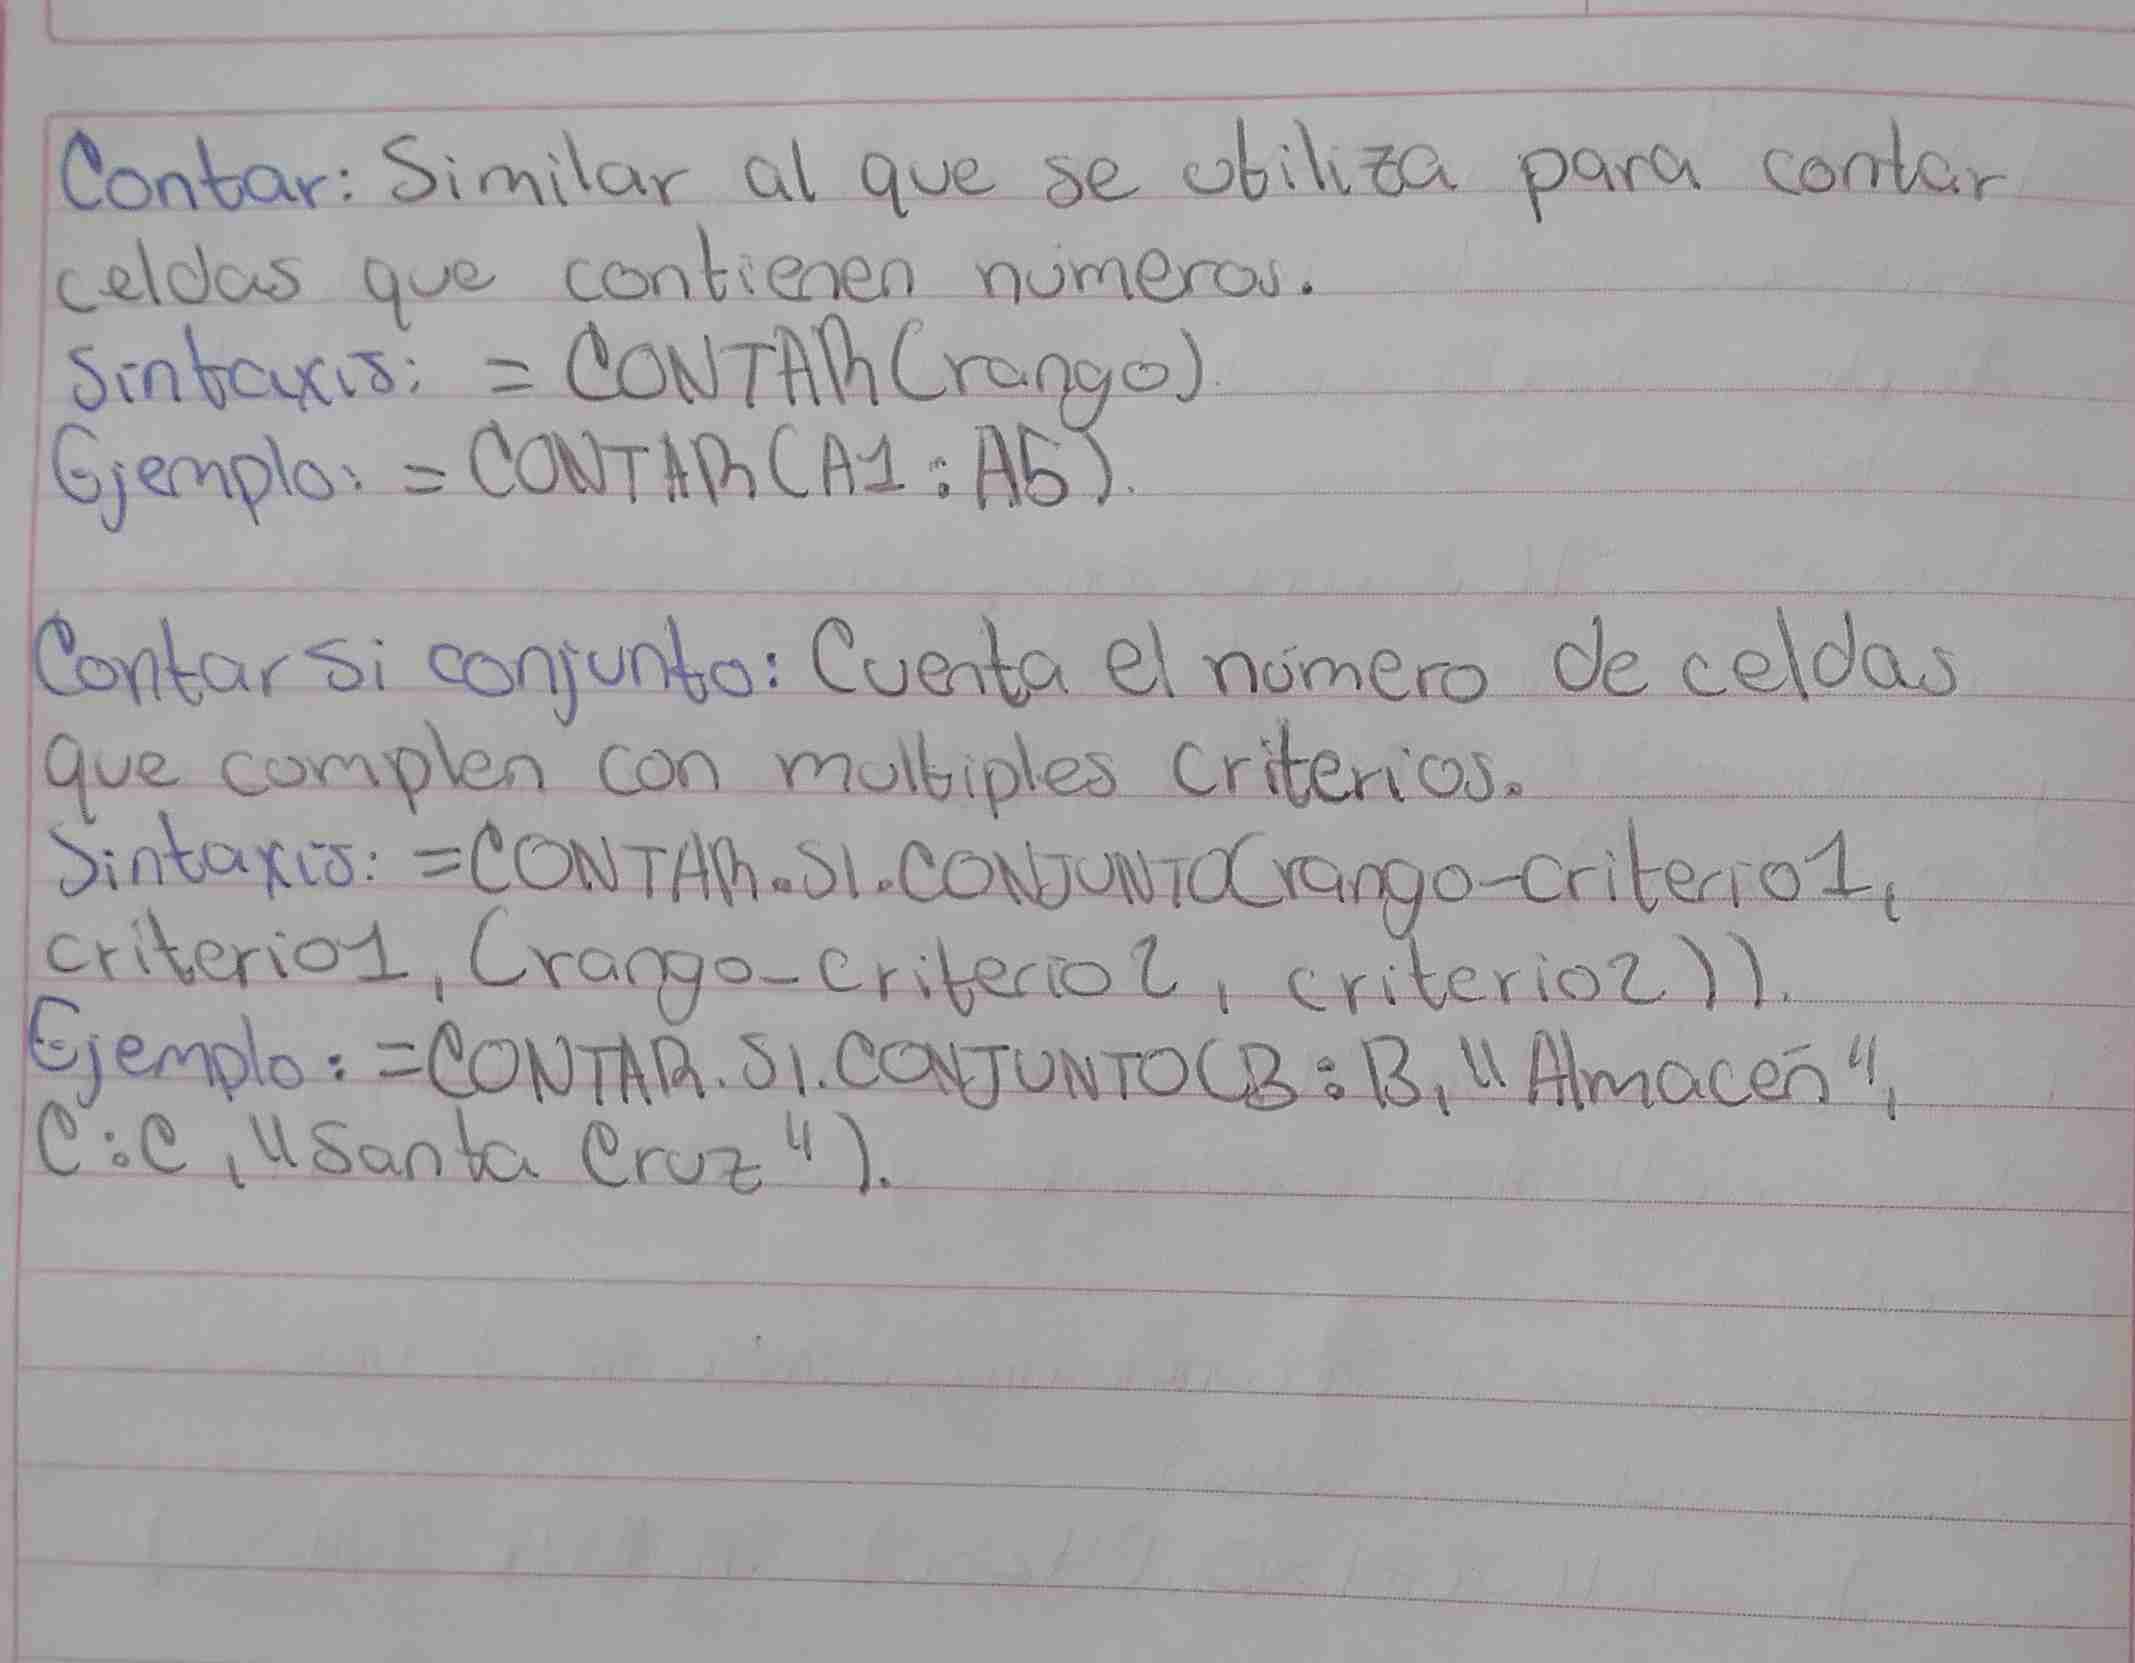 Contar: Similar al que se utiliza para contar
celdas que contienen números.
Sintaxis: =CONTAR(rango).
Ejemplo: =CONTAR(A1:A5).
Contar si conjunto: Cuenta el número de celdas
que complen con multiples criterios.
Sintaxis: =CONTAR.SI.CONJUNTO(rango-criterio1,
criterio1, (rango-criterio2, criterio2)).
Ejemplo: =CONTAR.SI.CONJUNTO(B:B, "Almacén",
C:C, "Santa Cruz").